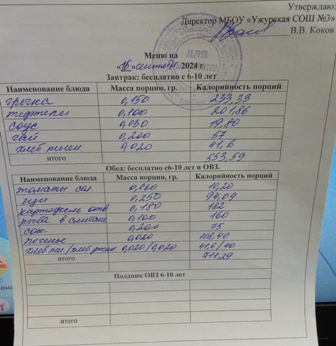 Утверждаю:
Директор МБОУ «Ужурская СОШ №3»
В.В. Коков
Меню на
«16» сентября 2024 г
Завтрак: бесплатно с 6-10 лет
Наименование блюда Масса порции, гр. Калорийность порций
гречка 0,150 233,33
тефтели 0,100
соус 0,030
чай 0,200 57
хлеб пшен 0,020 41,6
итого 553,59
Обед: бесплатно с6-10 лет и ОВЗ.
Наименование блюда Масса порции, гр. Калорийность порции
томаты сол. 10,20
щи 0,250 94,09
картофель отв 0,180 182
рыба в сметане 0,100 160
сок 0,200 75
печенье 0,020 108,40
хлеб пш./хлеб ржан 0,020/0,020 41,6/40
итого 711,29
Полдник ОВЗ 6-10 лет